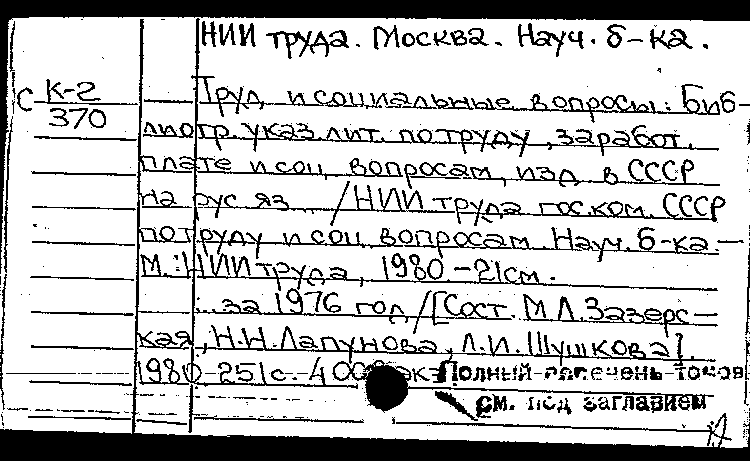 НИИ труда. Москва. Науч. б-ка.
С К-2
370
Труд и социальные вопросы: Биб-
лиогр. указ. лит. по труду, заработ.
плате и соц. вопросам, изд. в СССР
на рус. яз... /НИИ труда гос. ком. СССР
по труду и соц. вопросам. Науч. б-ка.—
М.: НИИ труда, 1980.-21см.
...за 1976 год /[Сост. М.Л.Зазерс-
кая, Н.Н.Лапунова, Л.И.Шушкова].
1980. 251с. 4000 эк
Полный перечень томов
см. под заглавием